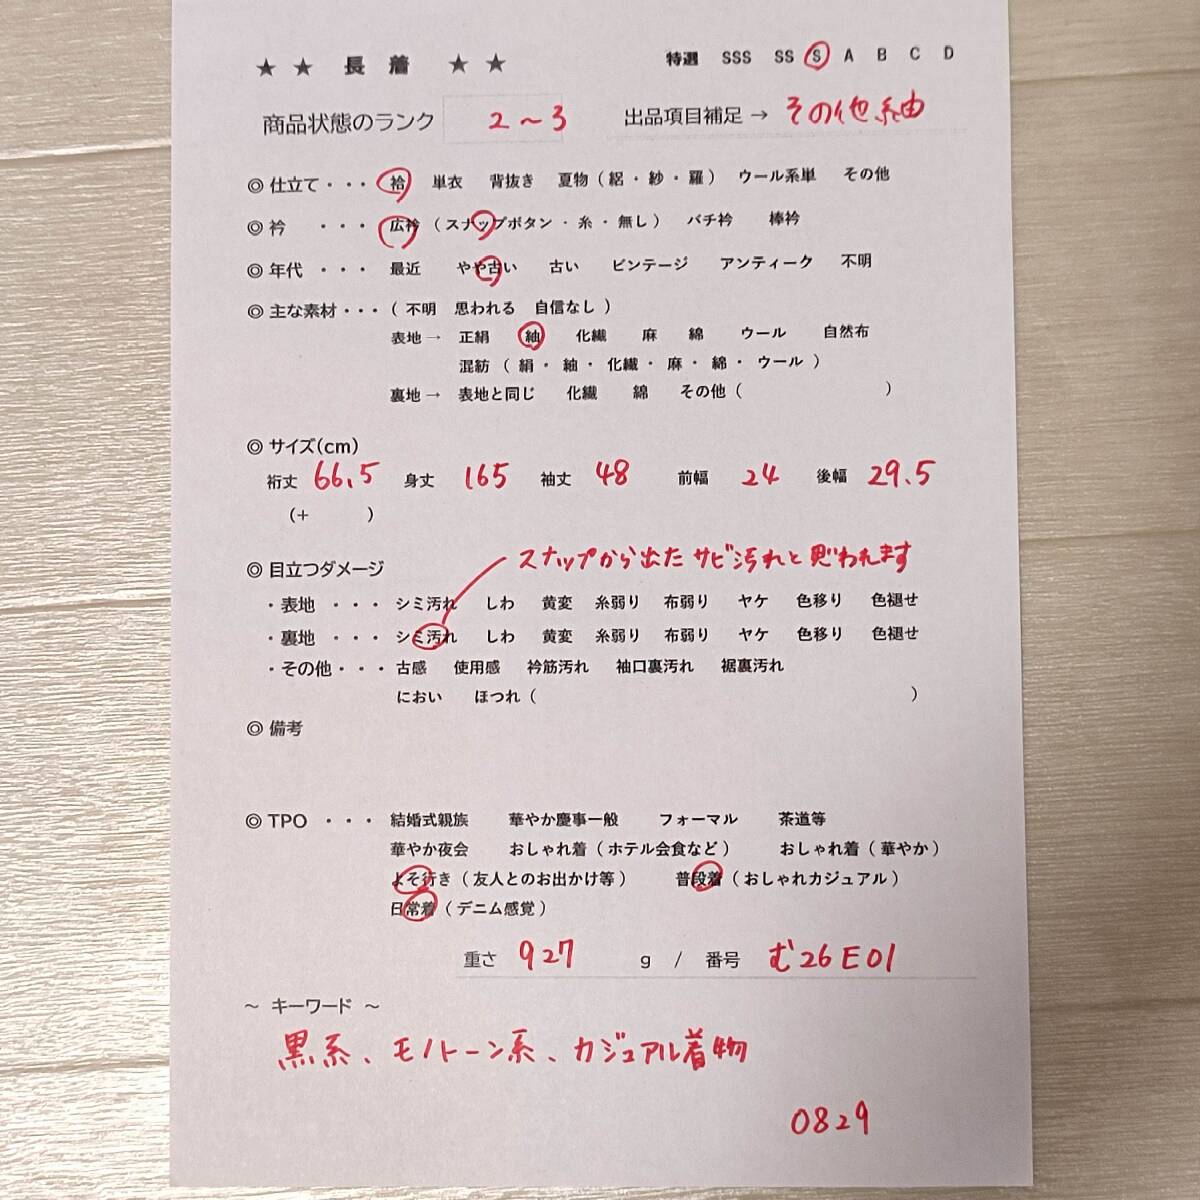 ★ ★ 長 着 ★ ★ 特選 SSS SS S A B C D
商品状態のランク 2～3 出品項目補足 → その他紬
◎ 仕立て・・・ 袷 単衣 背抜き 夏物（絽・紗・羅） ウール系単 その他
◎ 衿 ・・・ 広衿（スナップボタン・糸・無し） バチ衿 棒衿
◎ 年代 ・・・ 最近 やや古い 古い ビンテージ アンティーク 不明
◎ 主な素材・・・（ 不明 思われる 自信なし ）
表地→ 正絹 紬 化繊 麻 綿 ウール 自然布
混紡（ 絹・紬・化繊・麻・綿・ウール ）
裏地→ 表地と同じ 化繊 綿 その他（ ）
◎ サイズ(cm)
裄丈 66.5 身丈 165 袖丈 48 前幅 24 後幅 29.5
(+ )
スナップから出たサビ汚れと思われます
◎ 目立つダメージ
・表地 ・・・ シミ汚れ しわ 黄変 糸弱り 布弱り ヤケ 色移り 色褪せ
・裏地 ・・・ シミ汚れ しわ 黄変 糸弱り 布弱り ヤケ 色移り 色褪せ
・その他・・・ 古感 使用感 衿筋汚れ 袖口裏汚れ 裾裏汚れ
におい ほつれ（ ）
◎ 備考
◎ TPO ・・・ 結婚式親族 華やか慶事一般 フォーマル 茶道等
華やか夜会 おしゃれ着（ホテル会食など） おしゃれ着（華やか）
よそ行き（友人とのお出かけ等） 普段着（おしゃれカジュアル）
日常着（デニム感覚）
重さ 927 g / 番号 む26E01
～ キーワード ～
黒系、モノトーン系、カジュアル着物
0829